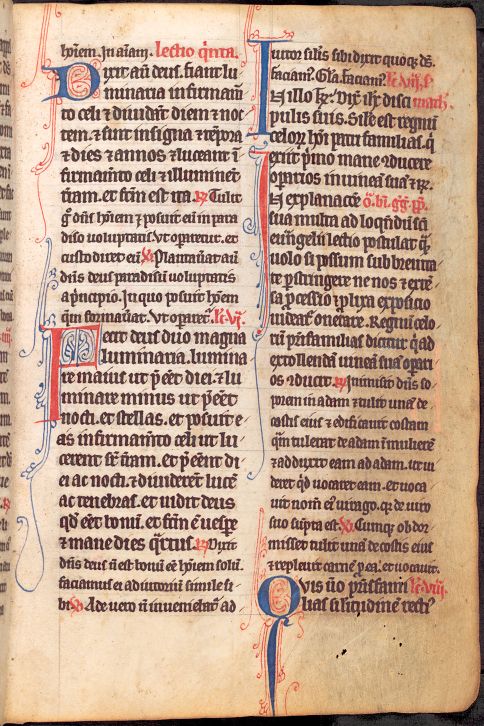 hoīem. In aīam. lectio qīnta.
Dixit aū deus. fiant lu
minaria in firmamē
to celi & diuidāt diem & noc
tem. & sint in signa & tēpora
& dies & annos & luceant ī
firmamēto celi & illuminēt
tr̄am. et fcm̄ est ita. ℟ Tulit
g̊ dn̄s hoīem & posuit eū in para
diso uoluptatis. Vt operaret̄. et
custodiret eū. ℣ Plantauāt aū
dn̄s deus paradisū uoluptatis
a pīncipio. In quo posuit hoīem
qm̄ formauāt. Vt operaret̄. Lc̄. vi.
Fecit deus duo magna
luminaria. lumina
re maius ut p̄eēt diei. & lu
minare minus ut p̄eēt
nocti. et stellas. et posuit e
as in firmamīto celi ut lu
cerent sr̄ tr̄am. et p̄eēnt di
ei ac nocti. & diuiderēt lucē
ac tenebras. et uidit deus
qd̄ eēt bonū. et fcm̄ ē uesp̄e
& mane dies qrtus. ℟ Dixit
dn̄s deus n̄ est bonū eē hoīem solū.
faciamus ei adiutoriū simile si
bi. ℣ Ade uero n̄ inueniebat̄ ad
iutor silīs sibi dixit quoq; ds̄.
faciam᷒. Gl̄a. faciam᷒. Lc̄. vij.
In illo t̄. Dix̄ ih̄c disci math̄.
pulis suis. Sīle est regnū
celor̄ hōi patri familias. q̄
exiit p̄mo mane 9ducere
oparios in uineā suā & r̄.
In explanac̄oe o. bī. gḡ. pp̄.
sua multa ad loq̄ndū sc̄i
euāgelii lectio postulat q̄
uolo si possum sub breuita
te p̄stringere ne nos & exten
sa p̄cessio & p̄lixa expositio
uideat᷒ on̄erare. Regnū celo
rū pr̄ifamilias dicitur q̄ ad
excollendā uineā suā opari
os 9ducit. ℟ Inmisit dn̄s so
porem in adam & tulit unā de
costis eius & edificauit costam
qm̄ tulerat de adam ī mulierē
& adduxit eam ad adam. ut ui
deret qd̄ uocaret eam. et uoca
uit nom̄ ei᷒ uirago. q̄a de uiro
suo sūpta est. ℣ Cumq; obdor
misset tulit unā de costis eius
& repleuit carnē p̄ ea. et uocauit.
Quis ū̊o pr̄isfamı̄ Lc̄. viii.
lias silitudinē recti᷒